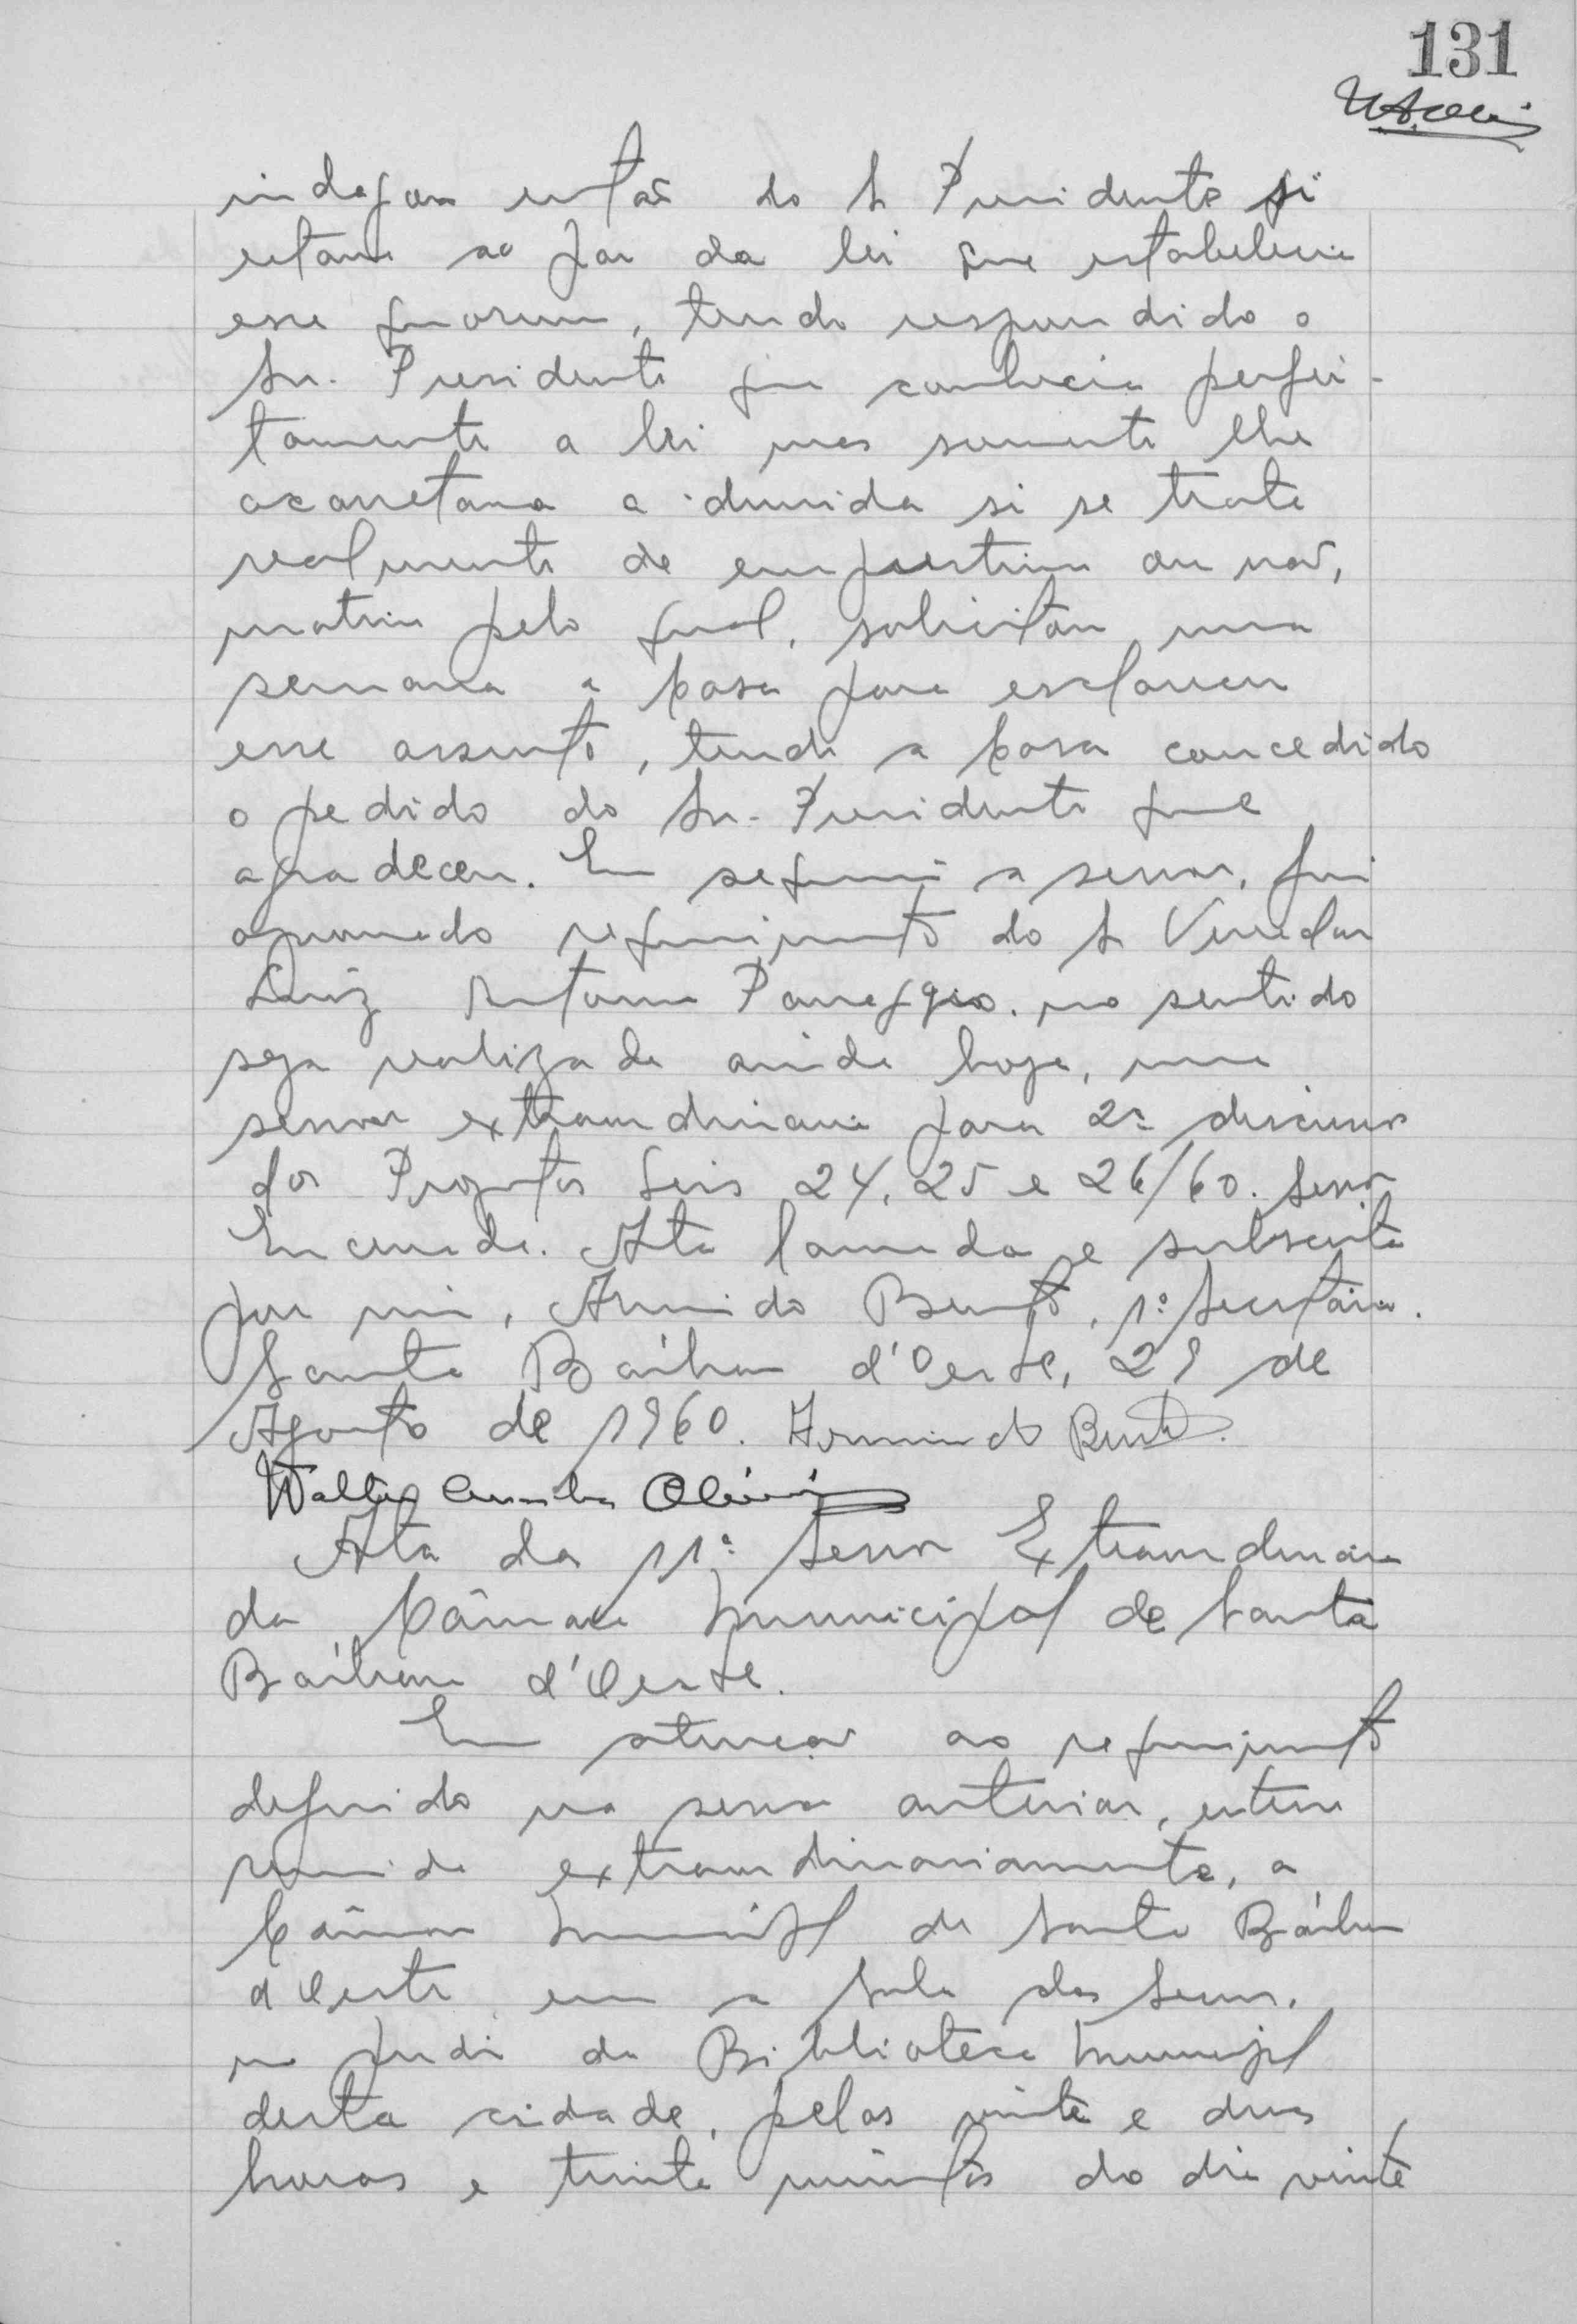 131
indagou então do Sr Presidente si
estava ao par da lei que estabelecia
esse quorum, tendo respondido o
Sr. Presidente que conhecia perfei-
tamente a lei mas somente lhe
acarretava a duvida si se trata
realmente de emprestimo ou não,
motivo pelo qual, solicitou uma
semana a Casa para esclarecer
esse assunto, tendo a Casa concedido
o pedido do Sr. Presidente que
agradeceu. Em seguida a sessão, foi
aprovado requerimento do Sr Vereador
Luiz Antonio Panaggio. no sentido
seja realizada ainda hoje, uma
sessão extraordinaria para 2ª discussão
dos Projetos Leis 24, 25 e 26/60. Sessão
Encerrada. Ata lavrada e subscrita
por mim, Armindo Bento, 1º Secretário.
Santa Bárbara d'Oeste, 29 de
Agosto de 1960. Armindo Bento.
Walter Oliveira
Ata da 11ª Sessão Extraordinária
da Câmara Municipal de Santa
Bárbara d'Oeste.
Em atenção ao requerimento
deferido na sessão anterior, esteve
reunida extraordinariamente, a
Câmara Municipal de Santa Bárbara
d'Oeste em a Sala das Sessões,
no predio da Biblioteca Municipal
desta cidade, pelas vinte e duas
horas e trinta minutos do dia vinte